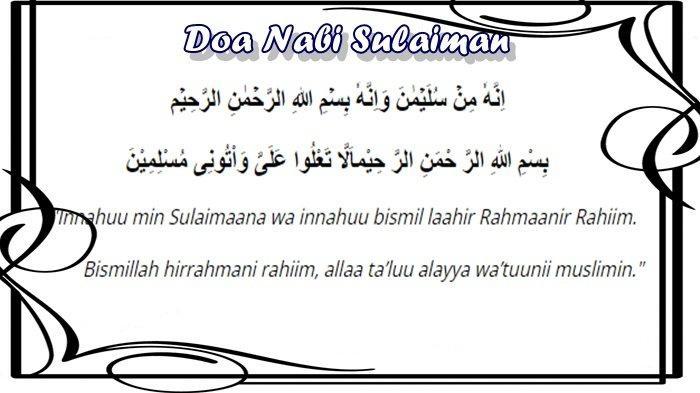 Doa Nabi Sulaiman
اِنَّهٗ مِنْ سُلَيْمٰنَ وَاِنَّهٗ بِسْمِ اللهِ الرَّحْمٰنِ الرَّحِيْمِ
بِسْمِ اللهِ الرَّ حْمَنِ الرَّ حِيْمِاَلَّا تَعْلُوا عَلَيَّ وَاْتُونِى مُسْلِمِيْنَ
"Innahuu min Sulaimaana wa innahuu bismil laahir Rahmaanir Rahiim.
Bismillah hirrahmani rahiim, allaa ta’luu alayya wa’tuunii muslimin."